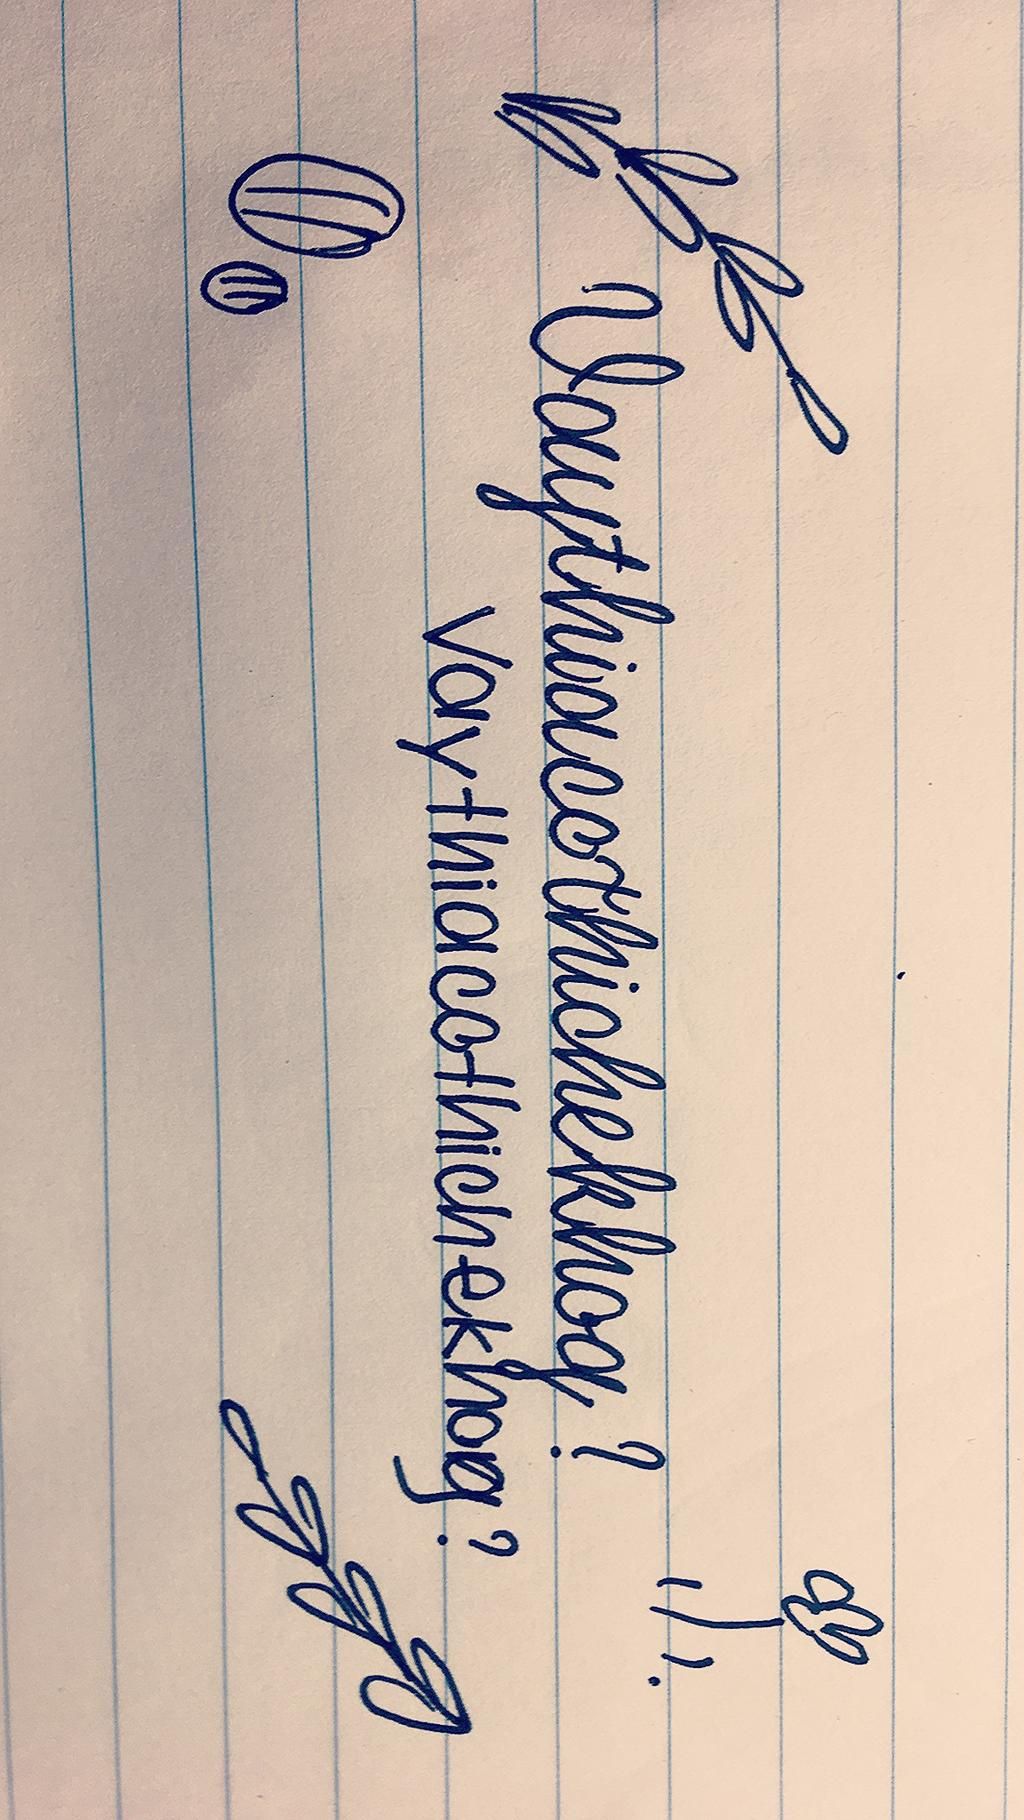 Vaythiacothichekhog?
Vaythiacothichekhog?